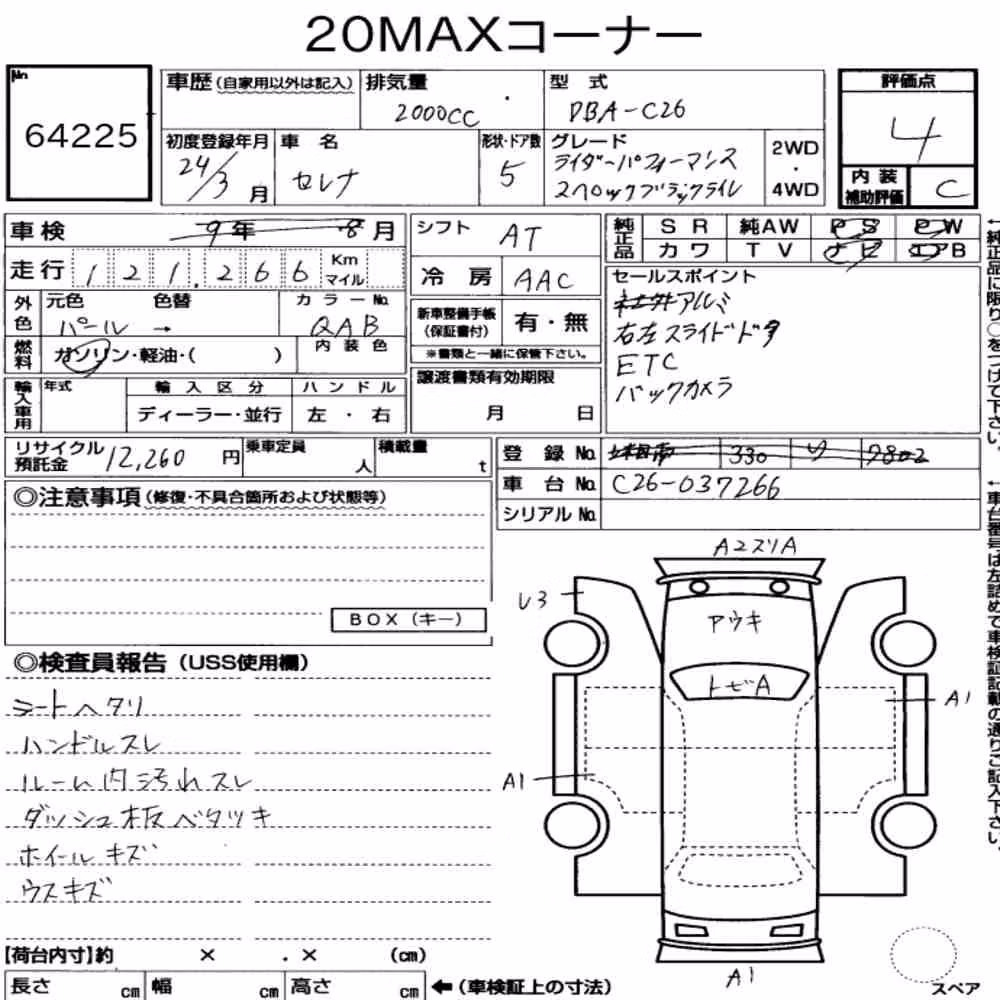 20MAXコーナー
No.
64225
車歴(自家用以外は記入)
排気量
2000CC
型式
DBA-C26
評価点
4
内装
補助評価
C
初度登録年月
24/3月
車名
セレナ
形状・ドア数
5
グレード
ライダーパフォーマンス
2WD
・
4WD
車検
9年 8月
走行
121,266
Km
マイル
シフト
AT
冷房
AAC
純正品
SR 純AW PS PW
カワ TV ナビ エアB
外色
元色
パール
色替
→
カラーNo.
QAB
燃料
ガソリン・軽油・( )
内装色
新車整備手帳
(保証書付)
有・無
※書類と一緒に保管下さい。
セールスポイント
社外アルミ
右左スライドドア
ETC
バックカメラ
輸入車用
年式
輸入区分
ディーラー・並行
ハンドル
左・右
譲渡書類有効期限
月 日
リサイクル
預託金
12,260円
乗車定員
人
積載量
t
登録No.
330
車台No.
C26-037266
シリアルNo.
◎注意事項(修復・不具合箇所および状態等)
BOX(キー)
◎検査員報告(USS使用欄)
シートヘタリ
ハンドルスレ
ルーム内汚れスレ
ダッシュ板ベタツキ
ホイールキズ
ウスキズ
A2スリA
U3
アウキ
トビA
A1
A1
A1
スペア
【荷台内寸】約 × . × (cm)
長さ cm 幅 cm 高さ cm ←(車検証上の寸法)
←純正品に限り○をつけて下さい。
←車台番号は左詰めで車検証記載の通りご記入下さい。